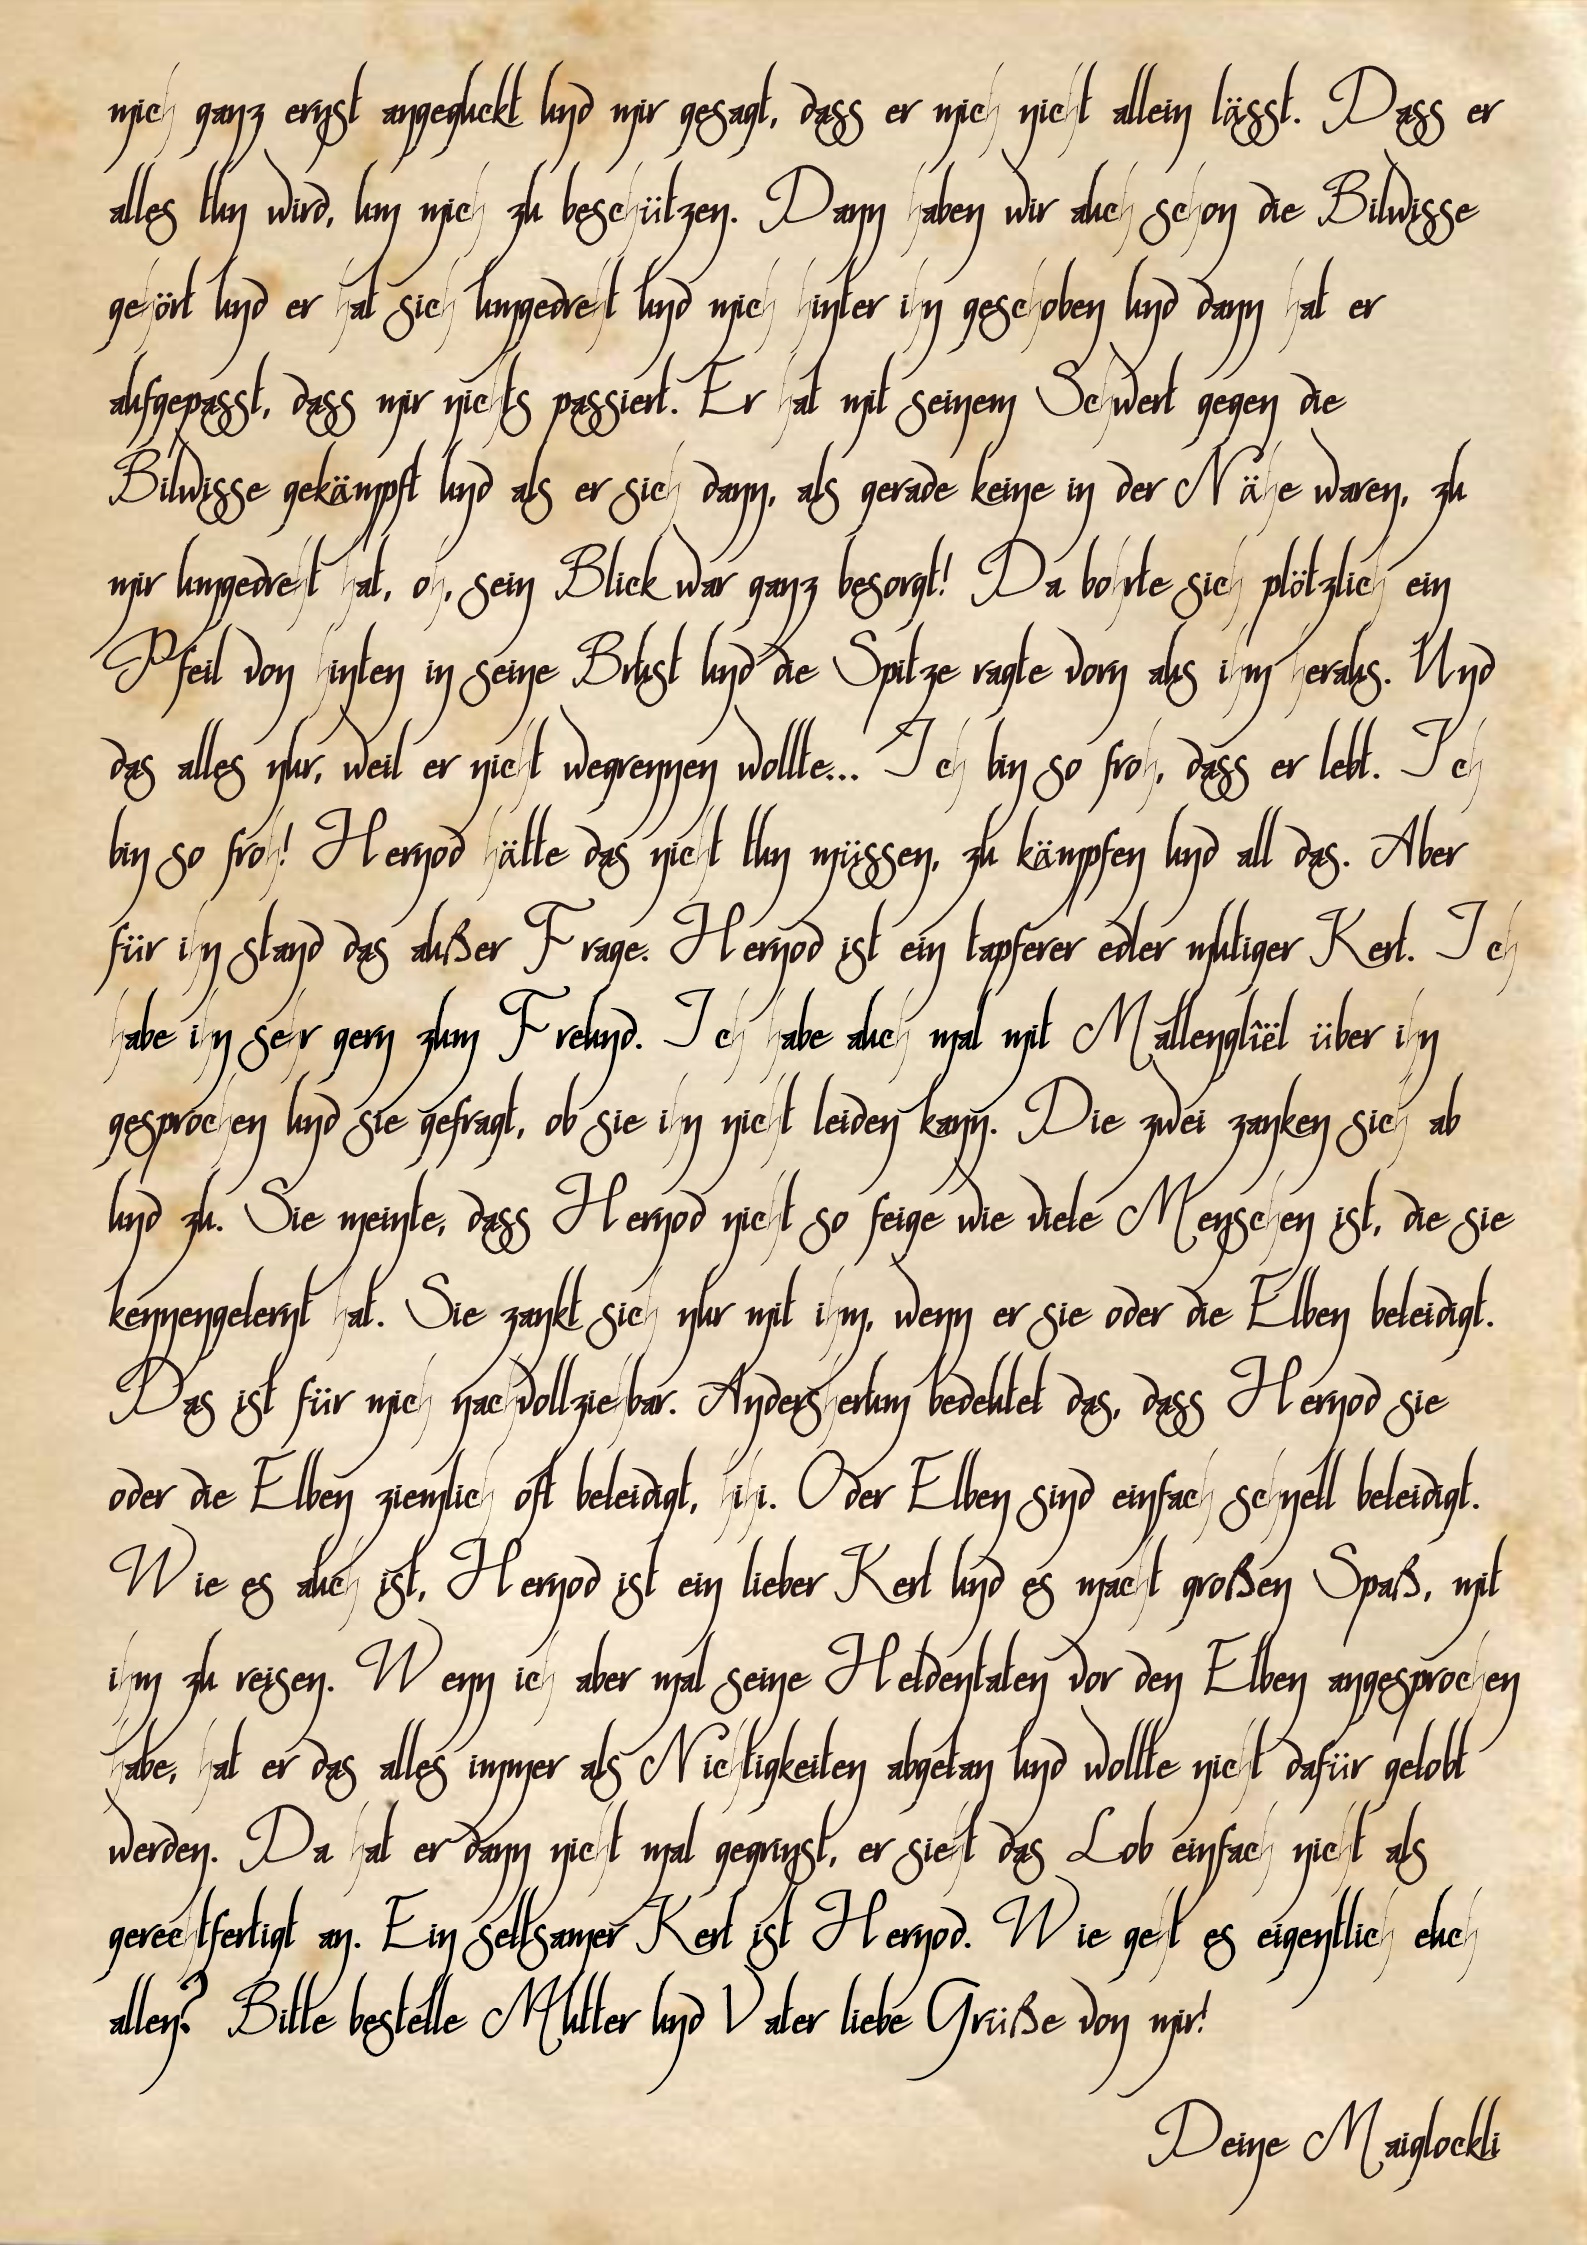 mich ganz ernst angeguckt und mir gesagt, dass er mich nicht allein lässt. Dass er
alles tun wird, um mich zu beschützen. Dann haben wir auch schon die Bilwisse
gehört und er hat sich umgedreht und mich hinter ihn geschoben und dann hat er
aufgepasst, dass mir nichts passiert. Er hat mit seinem Schwert gegen die
Bilwisse gekämpft und als er sich dann, als gerade keine in der Nähe waren, zu
mir umgedreht hat, oh, sein Blick war ganz besorgt! Da bohrte sich plötzlich ein
Pfeil von hinten in seine Brust und die Spitze ragte vorn aus ihm heraus. Und
das alles nur, weil er nicht wegrennen wollte... Ich bin so froh, dass er lebt. Ich
bin so froh! Hernod hätte das nicht tun müssen, zu kämpfen und all das. Aber
für ihn stand das außer Frage. Hernod ist ein tapferer edler mutiger Kerl. Ich
habe ihn sehr gern zum Freund. Ich habe auch mal mit Mallenglîël über ihn
gesprochen und sie gefragt, ob sie ihn nicht leiden kann. Die zwei zanken sich ab
und zu. Sie meinte, dass Hernod nicht so feige wie viele Menschen ist, die sie
kennengelernt hat. Sie zankt sich nur mit ihm, wenn er sie oder die Elben beleidigt.
Das ist für mich nachvollziehbar. Andersherum bedeutet das, dass Hernod sie
oder die Elben ziemlich oft beleidigt, hihi. Oder Elben sind einfach schnell beleidigt.
Wie es auch ist, Hernod ist ein lieber Kerl und es macht großen Spaß, mit
ihm zu reisen. Wenn ich aber mal seine Heldentaten vor den Elben angesprochen
habe, hat er das alles immer als Nichtigkeiten abgetan und wollte nicht dafür gelobt
werden. Da hat er dann nicht mal gegrinst, er sieht das Lob einfach nicht als
gerechtfertigt an. Ein seltsamer Kerl ist Hernod. Wie geht es eigentlich euch
allen? Bitte bestelle Mutter und Vater liebe Grüße von mir!
Deine Maiglockli